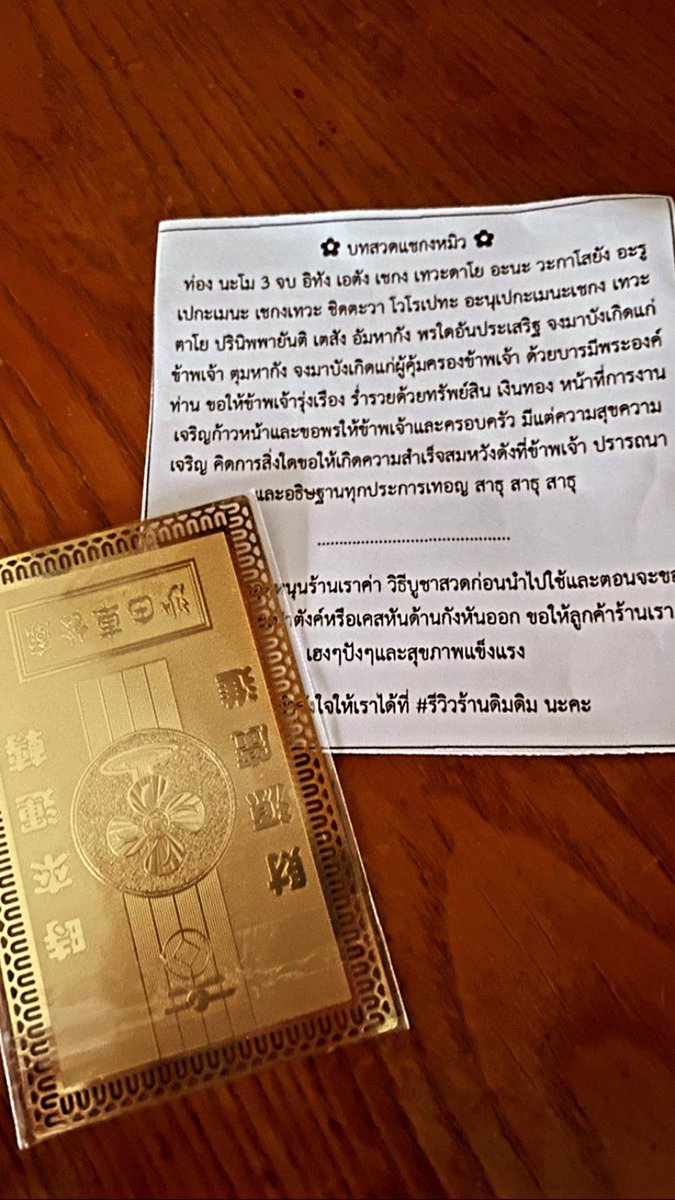 บทสวดแชกงหมิว
ท่อง นะโม 3 จบ อิทัง เอตัง เชกง เทวะดาโย อะนะ วะกาโสยัง อะรู
เปกะเมนะ เชกงเทวะ ชิตตะวา โวโรเปทะ อะนุเปกะเมนะเชกง เทวะ
ตาโย ปรินิพพายันติ เตสัง อัมหากัง พรใดอันประเสริฐ จงมาบังเกิดแก่
ข้าพเจ้า ตุมหากัง จงมาบังเกิดแก่ผู้คุ้มครองข้าพเจ้า ด้วยบารมีพระองค์
ท่าน ขอให้ข้าพเจ้ารุ่งเรือง ร่ำรวยด้วยทรัพย์สิน เงินทอง หน้าที่การงาน
เจริญก้าวหน้าและขอพรให้ข้าพเจ้าและครอบครัว มีแต่ความสุขความ
เจริญ คิดการสิ่งใดขอให้เกิดความสำเร็จสมหวังดังที่ข้าพเจ้า ปรารถนา
และอธิษฐานทุกประการเทอญ สาธุ สาธุ สาธุ
หนุนร้านเราค่า วิธีบูชาสวดก่อนนำไปใช้และตอนจะขอ
ตังค์หรือเคสหันด้านกังหันออก ขอให้ลูกค้าร้านเรา
เฮงๆปังๆและสุขภาพแข็งแรง
ใจให้เราได้ที่ #รีวิวร้านดิมดิม นะคะ
財源廣進
時來運轉